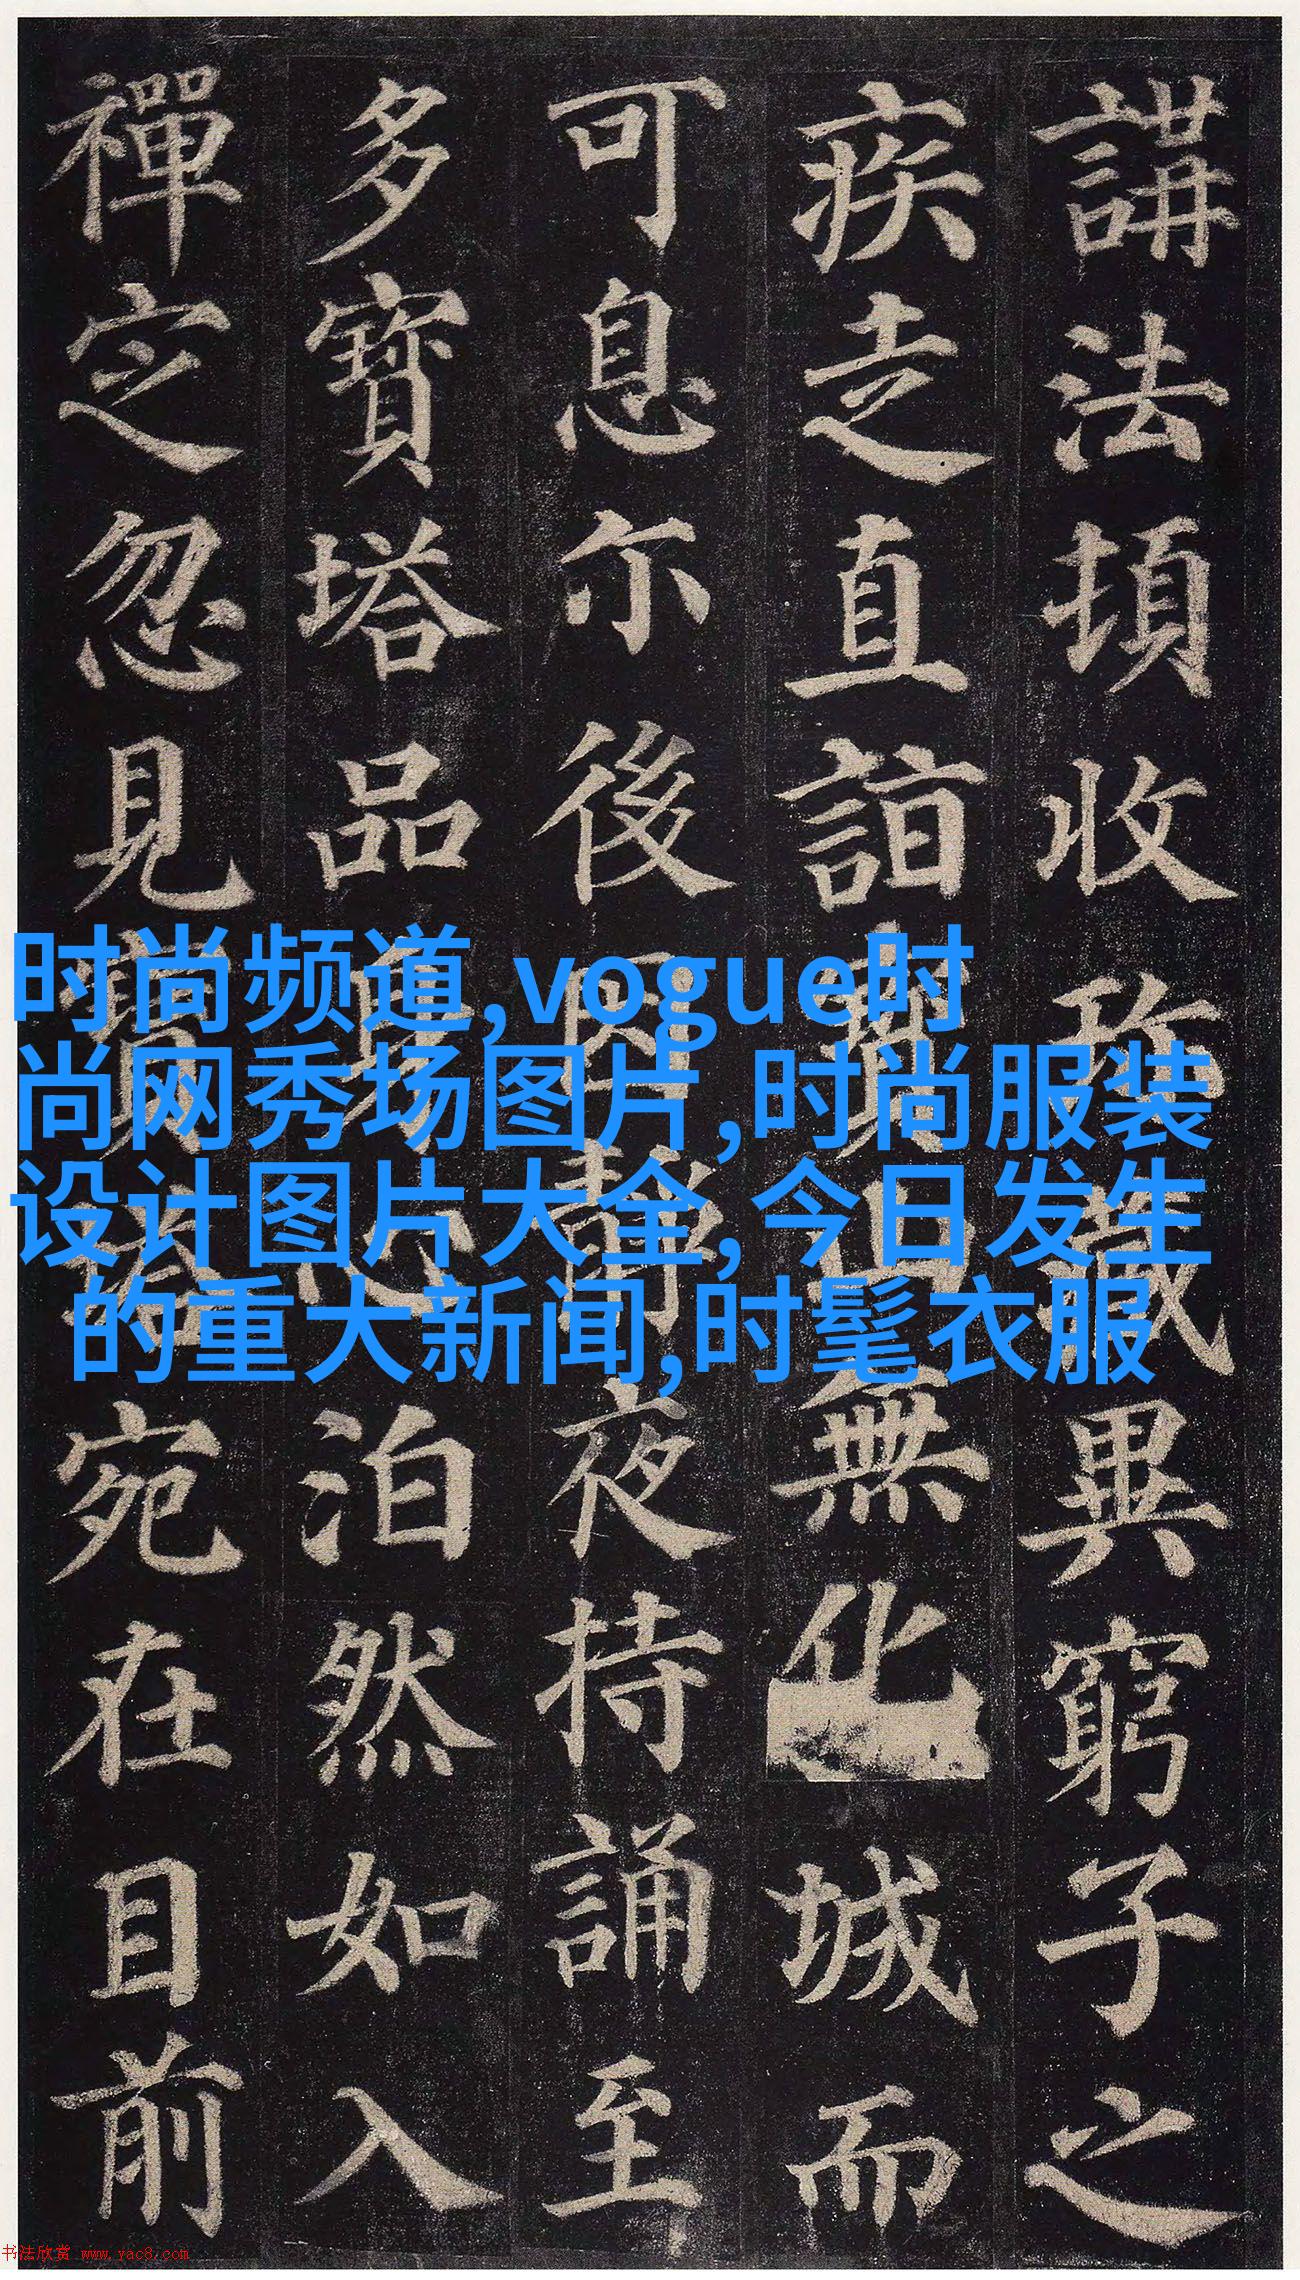 講法頓收珎藏異窮子之
疾走直詣寶山無化城而
可息尒後因靜夜持誦至
多寶塔品身心泊然如入
禪定忽見寶塔宛在目前
时尚频道,vogue时
尚网秀场图片,时尚服装
设计图片大全,今日发生
的重大新闻,时髦衣服
书法欣赏 www.yac8.com